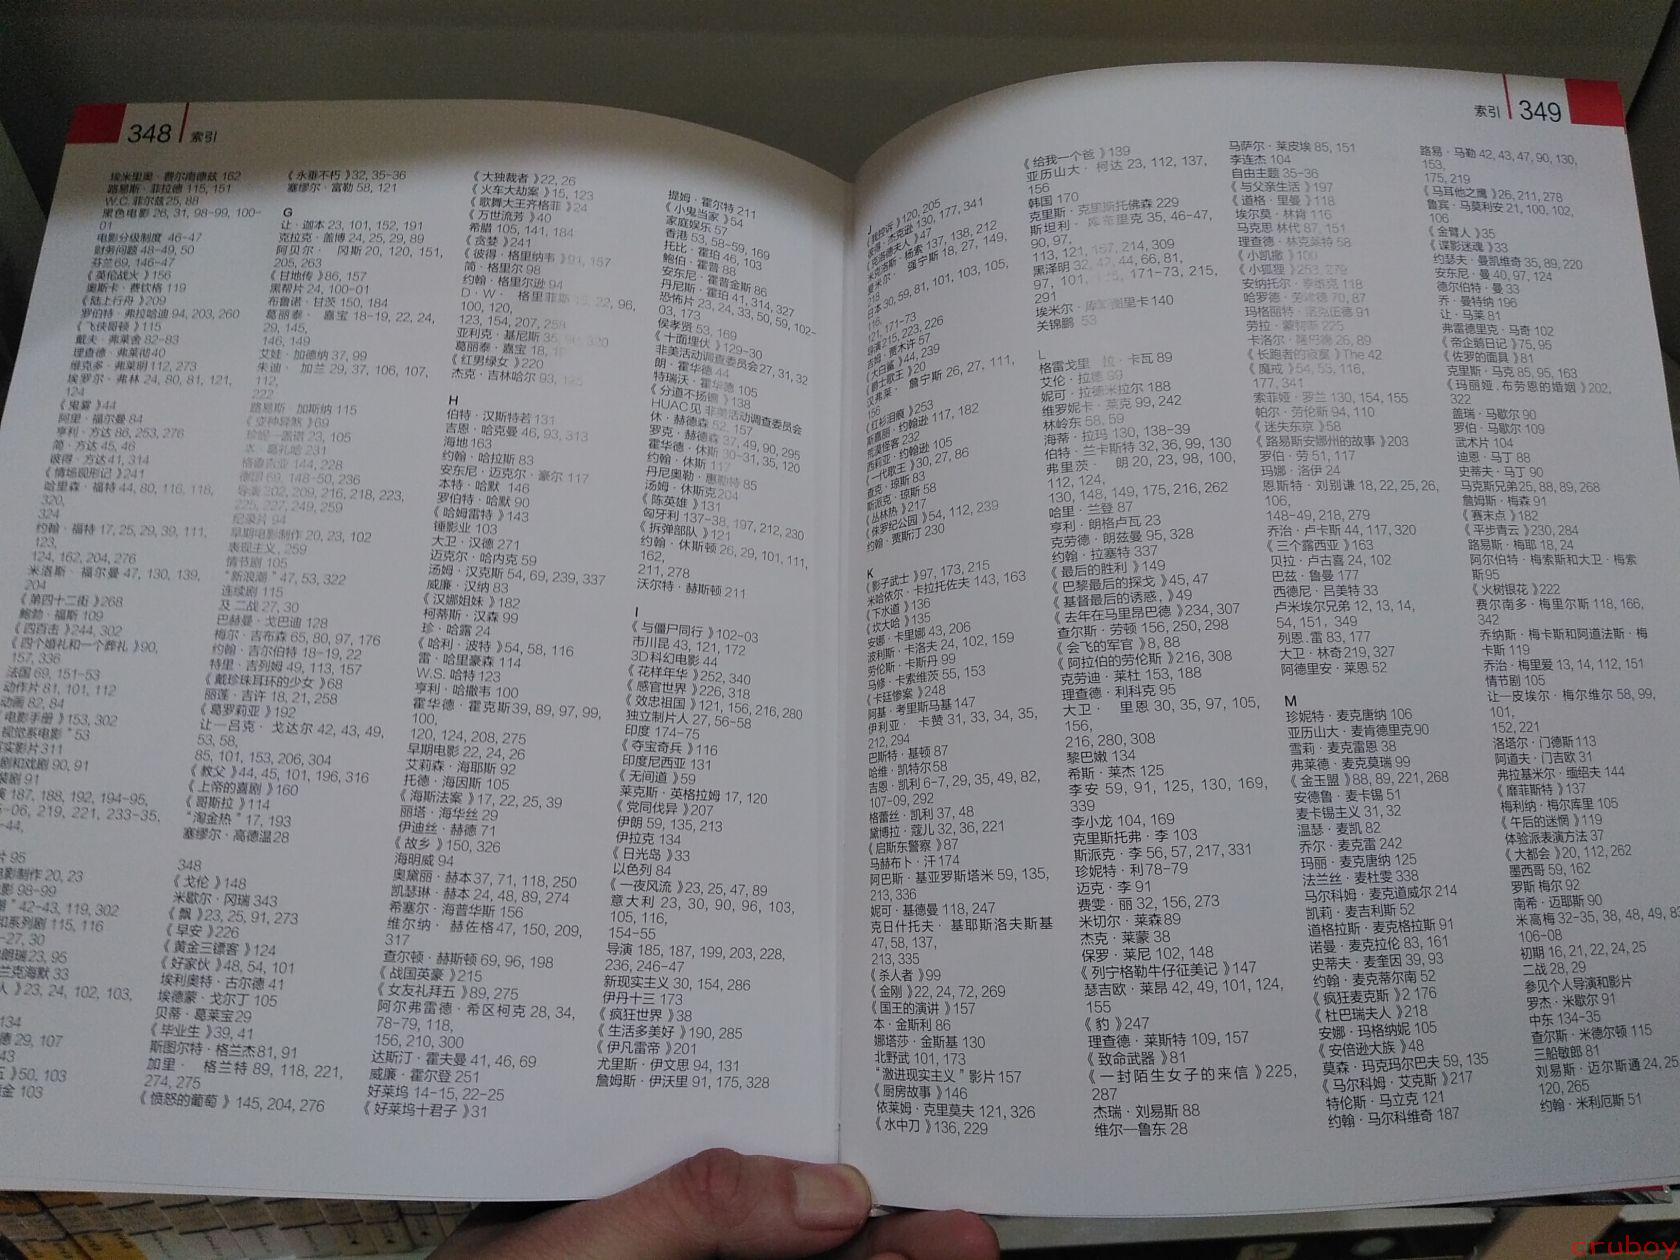 348 索引
埃米里奥·费尔南德兹 162
路易斯·菲拉德 115, 151
W.C.菲尔兹25, 88
黑色电影 26, 31, 98-99, 100-
01
电影分级制度 46-47
财务问题 48-49, 50
芬兰69, 146-47
《英伦战火》156
奥斯卡·费钦格 119
《陆上行舟》209
罗伯特·弗拉哈迪 94, 203, 260
《飞侠哥顿》115
戴夫·弗莱舍 82-83
理查德·弗莱彻40
维克多·弗莱明 112, 273
埃罗尔·弗林 24, 80, 81, 121,
124
《鬼雾》44
阿里·福尔曼 84
亨利·方达 86, 253, 276
简·方达 45, 46
彼得·方达41, 314
《情场现形记》241
哈里森·福特 44, 80, 116, 118,
320,
324
约翰·福特 17, 25, 29, 39, 111,
123,
124, 162, 204, 276
米洛斯·福尔曼 47, 130, 139,
204
《第四十二街》268
鲍勃·福斯 109
《四百击》244, 302
《四个婚礼和一个葬礼》90,
157, 336
法国 69, 151-53
动作片 81, 101, 112
动画 82, 84
电影手册》153, 302
视觉系电影" 53
实影片311
剧和戏剧 90, 91
装剧 91
演 187, 188, 192, 194-95,
-06, 219, 221, 233-35,
-44,
片 95
电影制作 20, 23
影 98-99
潮" 42-43, 119, 302
和系列剧 115, 116
-27, 30
朗瑞23, 95
兰克海默 33
人》23, 24, 102, 103,
134
德 29, 107
43
五》50, 103
金 103
《永垂不朽》32, 35-36
塞缪尔·富勒 58, 121
G
让·迦本 23, 101, 152, 191
克拉克·盖博 24, 25, 29, 89
阿贝尔· 冈斯 20, 120, 151,
205, 263
《甘地传》86, 157
黑帮片 24, 100-01
布鲁诺·甘茨 150, 184
葛丽泰· 嘉宝 18-19, 22, 24,
29, 145,
146, 149
艾娃·加德纳 37, 99
朱迪· 加兰 29, 37, 106, 107,
112,
222
路易斯·加斯纳 115
《变种异煞》69
珍妮·盖诺 23, 105
水·葛礼哈 231
格鲁吉亚 144, 228
德国 69, 148-50, 236
导演 202, 209, 216, 218, 223,
225, 227, 249, 259
纪录片 94
早期电影制作 20, 23, 102
表现主义, 259
情节剧 105
"新浪潮" 47, 53, 322
连续剧 115
及 二战 27, 30
巴赫曼·戈巴迪 128
梅尔·吉布森 65, 80, 97, 176
约翰·吉尔伯特 18-19, 22
特里·吉列姆 49, 113, 157
《戴珍珠耳环的少女》68
丽莲·吉许 18, 21, 258
《葛罗莉亚》192
让—吕克· 戈达尔 42, 43, 49,
53, 58,
85, 101, 153, 206, 304
《教父》44, 45, 101, 196, 316
《上帝的喜剧》160
《哥斯拉》114
"淘金热" 17, 193
塞缪尔·高德温28
348
《戈伦》148
米歇尔·冈瑞 343
《飘》23, 25, 91, 273
《早安》226
《黄金三镖客》124
《好家伙》48, 54, 101
埃利奥特·古尔德 41
埃德蒙·戈尔丁 105
贝蒂·葛莱宝29
《毕业生》39, 41
斯图尔特·格兰杰81, 91
加里· 格兰特 89, 118, 221,
274, 275
《愤怒的葡萄》145, 204, 276
《大独裁者》22, 26
《火车大劫案》15, 123
《歌舞大王齐格菲》24
《万世流芳》40
希腊 105, 141, 184
《贪婪》241
《彼得·格里纳韦》91, 157
简·格里尔 98
约翰·格里尔逊 94
D·W· 格里菲斯 15, 22, 96,
100, 120,
123, 154, 207, 258
亚利克·基尼斯 35, 90, 320
葛丽泰·嘉宝 18, 1
《红男绿女》220
杰克·吉林哈尔 93, 125
H
伯特·汉斯特若 131
吉恩·哈克曼 46, 93, 313
海地163
约翰·哈拉斯 83
安东尼·迈克尔·豪尔 117
本特·哈默 146
罗伯特·哈默 90
《哈姆雷特》143
锤影业 103
大卫·汉德 271
迈克尔·哈内克 59
汤姆·汉克斯 54, 69, 239, 337
威廉·汉纳 83
《汉娜姐妹》182
柯蒂斯·汉森 99
珍·哈露 24
《哈利·波特》54, 58, 116
雷·哈里豪森 114
W.S. 哈特 123
亨利·哈撒韦 100
霍华德·霍克斯39, 89, 97, 99,
100,
120, 124, 208, 275
早期电影 22, 24, 26
艾莉森·海耶斯 92
托德·海因斯 105
《海斯法案》17, 22, 25, 39
丽塔·海华丝 29
伊迪丝·赫德 71
《故乡》150, 326
海明威 94
奥黛丽·赫本37, 71, 118, 250
凯瑟琳·赫本 24, 48, 89, 274
希塞尔·海普华斯 156
维尔纳· 赫佐格47, 150, 209,
317
查尔顿·赫斯顿 69, 96, 198
《战国英豪》215
《女友礼拜五》89, 275
阿尔弗雷德·希区柯克 28, 34,
78-79, 118,
156, 210, 300
达斯汀·霍夫曼 41, 46, 69
威廉·霍尔登 251
好莱坞 14-15, 22-25
《好莱坞十君子》31
提姆·霍尔特 211
《小鬼当家》54
家庭娱乐 57
香港 53, 58-59, 169
托比·霍珀 46, 103
鲍伯·霍普 88
安东尼·霍普金斯 86
丹尼斯·霍珀 41, 314, 327
恐怖片 23, 24, 33, 50, 59, 102-
03, 173
侯孝贤 53, 169
《十面埋伏》129-30
非美活动调查委员会27, 31, 32
朗·霍华德 44
特瑞沃·霍华德 105
《分道不扬镳》138
HUAC见 非美活动调查委员会
休·赫德森 52, 157
罗克·赫德森 37, 49, 90, 295
霍华德·休斯 30-31, 35, 120
约翰·休斯 117
丹尼奥勒·惠勒特 85
汤姆·休斯克204
《陈英雄》131
匈牙利 137-38, 197, 212, 230
《拆弹部队》121
约翰·休斯顿 26, 29, 101, 111,
162,
211, 278
沃尔特·赫斯顿 211
I
《与僵尸同行》102-03
市川昆 43, 121, 172
3D科幻电影 44
《花样年华》252, 340
《感官世界》226, 318
《效忠祖国》121, 156, 216, 280
独立制片人 27, 56-58
印度 174-75
《夺宝奇兵》116
印度尼西亚 131
《无间道》59
莱克斯·英格拉姆 17, 120
《党同伐异》207
伊朗 59, 135, 213
伊拉克 134
《日光岛》33
以色列 84
《一夜风流》23, 25, 47, 89
意大利 23, 30, 90, 96, 103,
105, 116,
154-55
导演 185, 187, 199, 203, 228,
236, 246-47
新现实主义 30, 154, 286
伊丹十三 173
《疯狂世界》38
《生活多美好》190, 285
《伊凡雷帝》201
尤里斯·伊文思 94, 131
詹姆斯·伊沃里 91, 175, 328
索引 349
J
《我控诉》120, 205
彼得·杰克逊 130, 177, 341
《克洛德夫人》47
米克洛斯·杨索 137, 138, 212
夏米尔· 强宁斯 18, 27, 149,
218
日本 30, 59, 81, 101, 103, 105,
116,
121, 171-73
导演215, 223, 226
吉姆·贾木许 57
《大白鲨》44, 239
《爵士歌王》20
汉弗莱· 詹宁斯 26, 27, 111,
156
《红衫泪痕》253
斯嘉丽·约翰逊 117, 182
荒漠怪客 232
西莉亚·约翰逊 105
《一代歌王》30, 27, 86
查克·琼斯 83
斯派克·琼斯 58
《丛林热》217
《侏罗纪公园》54, 112, 239
约翰·贾斯汀 230
K
《影子武士》97, 173, 215
米哈依尔·卡拉托佐夫 143, 163
《下水道》136
《坎大哈》135
安娜·卡里娜 43, 206
波利斯·卡洛夫 24, 102, 159
伦尼·卡斯丹 99
马修·卡索维茨 55, 153
《卡廷惨案》248
阿基·考里斯马基 147
伊利亚· 卡赞 31, 33, 34, 35,
212, 294
巴斯特·基顿 87
哈维·凯特尔58
吉恩·凯利 6-7, 29, 35, 49, 82,
107-09, 292
格蕾丝·凯利 37, 48
黛博拉·蔻儿 32, 36, 221
《启斯东警察》87
马赫布卜·汗 174
阿巴斯·基亚罗斯塔米 59, 135,
213, 336
妮可·基德曼 118, 247
克日什托夫· 基耶斯洛夫斯基
47, 58, 137,
213, 335
《杀人者》99
《金刚》22, 24, 72, 269
《国王的演讲》157
本·金斯利 86
娜塔莎·金斯基 130
北野武 101, 173
"激进现实主义"影片157
《厨房故事》146
依莱姆·克里莫夫 121, 326
《水中刀》136, 229
《给我一个爸》139
亚历山大·柯达 23, 112, 137,
156
韩国 170
克里斯·克里斯托佛森 229
斯坦利·库布里克 35, 46-47,
90, 97,
113, 121, 157, 214, 309
黑泽明 32, 42, 44, 66, 81,
97, 101, 121, 171-73, 215,
291
埃米尔·库斯图里卡 140
关锦鹏 53
L
格雷戈里 拉·卡瓦 89
艾伦·拉德 99
妮可·拉德米拉尔 188
维罗妮卡·莱克 99, 242
林岭东 58, 59
海蒂·拉玛 130, 138-39
伯特·兰卡斯特 32, 36, 99, 130
弗里茨· 朗 20, 23, 98, 100,
112, 124,
130, 148, 149, 175, 216, 262
哈里·兰登 87
亨利·朗格卢瓦 23
克劳德·朗兹曼 95, 328
约翰·拉塞特 337
《最后的胜利》149
《巴黎最后的探戈》45, 47
《基督最后的诱惑,》49
《去年在马里昂巴德》234, 307
查尔斯·劳顿 156, 250, 298
《会飞的军官》8, 88
《阿拉伯的劳伦斯》216, 308
克劳迪·莱杜 153, 188
理查德·利科克 95
大卫· 里恩 30, 35, 97, 105,
156,
216, 280, 308
黎巴嫩 134
希斯·莱杰 125
李安 59, 91, 125, 130, 169,
339
李小龙 104, 169
克里斯托弗·李 103
斯派克·李 56, 57, 217, 331
珍妮特·利78-79
迈克·李 91
费雯·丽 32, 156, 273
米切尔·莱森89
杰克·莱蒙 38
保罗·莱尼 102, 148
《列宁格勒牛仔征美记》147
瑟吉欧·莱昂 42, 49, 101, 124,
155
《豹》247
理查德·莱斯特 109, 157
《致命武器》81
《一封陌生女子的来信》225,
287
杰瑞·刘易斯 88
维尔—鲁东 28
马萨尔·莱皮埃 85, 151
李连杰 104
自由主题 35-36
《与父亲生活》197
《道格·里曼》118
埃尔莫·林肯 116
马克思 林代 87, 151
理查德·林克莱特 58
《小凯撒》100
《小狐狸》253, 279
安纳托尔·李维克 118
哈罗德·劳埃德 70, 87
玛格丽特·洛克伍德 91
劳拉·蒙特斯 225
卡洛尔·隆巴德 26, 89
《长跑者的寂寞》The 42
《魔戒》54, 53, 116,
177, 341
索菲娅·罗兰 130, 154, 155
帕尔·劳伦斯 94, 110
《迷失东京》58
《路易斯安娜州的故事》203
罗伯·劳 51, 117
玛娜·洛伊 24
恩斯特·刘别谦 18, 22, 25, 26,
106,
148-49, 218, 279
乔治·卢卡斯 44, 117, 320
《三个露西亚》163
贝拉·卢古喜 24, 102
巴兹·鲁曼 177
西德尼·吕美特 33
卢米埃尔兄弟 12, 13, 14,
54, 151, 349
列恩.雷 83, 177
大卫·林奇219, 327
阿德里安·莱恩 52
M
珍妮特·麦克唐纳 106
亚历山大·麦肯德里克90
雪莉·麦克雷恩 38
弗莱德·麦克莫瑞 99
《金玉盟》88, 89, 221, 268
安德鲁·麦卡锡 51
麦卡锡主义 31, 32
温瑟·麦凯 82
乔尔·麦克雷 242
玛丽·麦克唐纳 125
法兰丝·麦杜雯 338
马尔科姆·麦克道威尔 214
凯莉·麦吉利斯 52
道格拉斯·麦克格拉斯 91
诺曼·麦克拉伦 83, 161
史蒂夫·麦奎因 39, 93
约翰·麦克蒂尔南 52
《疯狂麦克斯》2 176
《杜巴瑞夫人》218
安娜·玛格纳妮 105
《安倍逊大族》48
莫森·玛克玛尔巴夫 59, 135
《马尔科姆·艾克斯》217
特伦斯·马立克 121
约翰·马尔科维奇 187
路易·马勒 42, 43, 47, 90, 130,
153,
175, 219
《马耳他之鹰》26, 211, 278
鲁宾·马莫利安 21, 100, 102,
106
《金臂人》35
《谍影迷魂》33
约瑟夫·曼凯维奇 35, 89, 220
安东尼·曼 40, 97, 124
德尔伯特·曼 33
乔·曼特纳 196
让·马莱 81
弗雷德里克·马奇 102
《帝企鹅日记》75, 95
《佐罗的面具》81
克里斯·马克 85, 95, 163
《玛丽娅.布劳恩的婚姻》202,
322
盖瑞·马歇尔 90
罗伯·马歇尔 109
武术片 104
迪恩·马丁 88
史蒂夫·马丁 90
马克斯兄弟25, 88, 89, 268
詹姆斯·梅森 91
《赛末点》182
《平步青云》230, 284
路易斯·梅耶 18, 24
阿尔伯特·梅索斯和大卫·梅索
斯95
《火树银花》222
费尔南多·梅里尔斯 118, 166,
342
乔纳斯·梅卡斯和阿道法斯·梅
卡斯 119
乔治·梅里爱 13, 14, 112, 151
情节剧 105
让—皮埃尔·梅尔维尔 58, 99,
101,
152, 221
洛塔尔·门德斯 113
阿道夫·门吉欧 31
弗拉基米尔·缅绍夫 144
《靡菲斯特》137
梅利纳·梅尔库里 105
《午后的迷惘》119
体验派表演方法 37
《大都会》20, 112, 262
墨西哥 59, 162
罗斯 梅尔 92
南希·迈耶斯 90
米高梅 32-35, 38, 48, 49, 83
106-08
初期 16, 21, 22, 24, 25
二战 28, 29
参见个人导演和影片
罗杰·米歇尔 91
中东 134-35
查尔斯·米德尔顿 115
三船敏郎 81
刘易斯·迈尔斯通 24, 25
120, 265
约翰·米利厄斯 51
cruboy